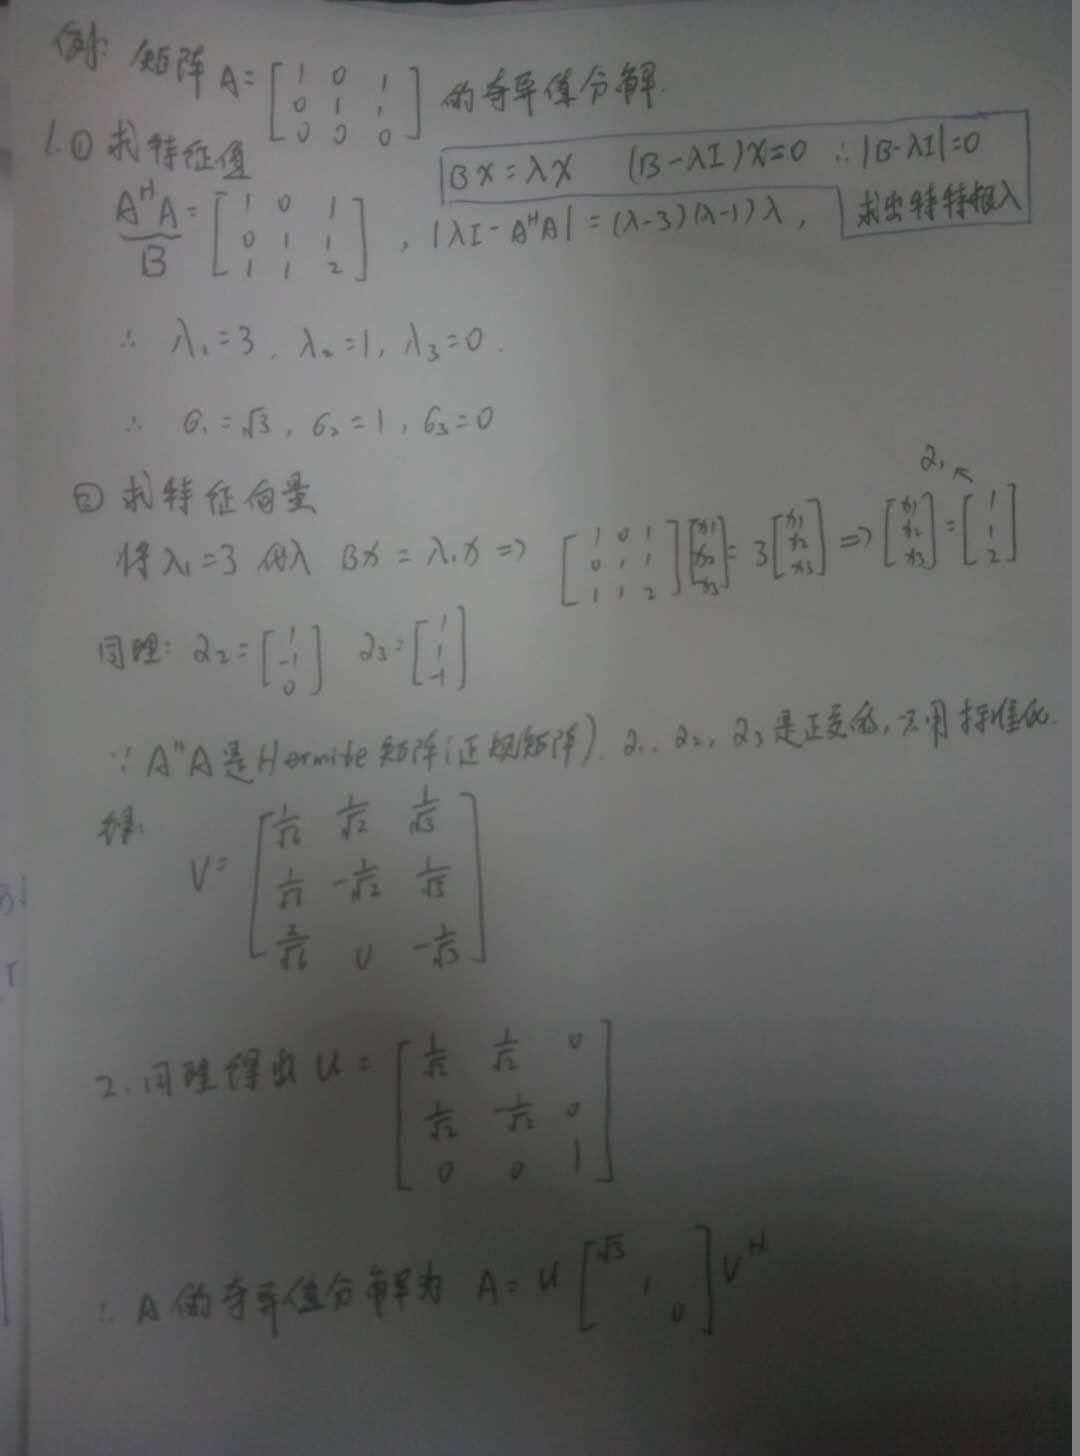 例: 矩阵 A = [1 0 1; 0 1 1; 0 0 0] 的奇异值分解.
1. ① 求特征值
BX = λX (B-λI)X=0 ∴ |B-λI|=0
求出特特根λ
A^H A = [1 0 1; 0 1 1; 1 1 2], |λI - A^H A| = (λ-3)(λ-1)λ,
B
∴ λ₁=3, λ₂=1, λ₃=0.
∴ σ₁=√3, σ₂=1, σ₃=0
② 求特征向量
将λ₁=3 代入 Bx = λ₁x ⇒ [1 0 1; 0 1 1; 1 1 2][x1; x2; x3] = 3[x1; x2; x3] ⇒ [x1; x2; x3] = [1; 1; 2] α₁
同理: α₂ = [1; -1; 0] α₃ = [1; 1; -1]
∵ A^H A是Hermite矩阵(正规矩阵). α₁, α₂, α₃是正交的, 只用标准化.
得: V = [1/√6 1/√2 1/√3; 1/√6 -1/√2 1/√3; 2/√6 0 -1/√3]
2. 同理得出 U = [1/√2 1/√2 0; 1/√2 -1/√2 0; 0 0 1]
∴ A的奇异值分解为 A = U [√3 1 0] V^H